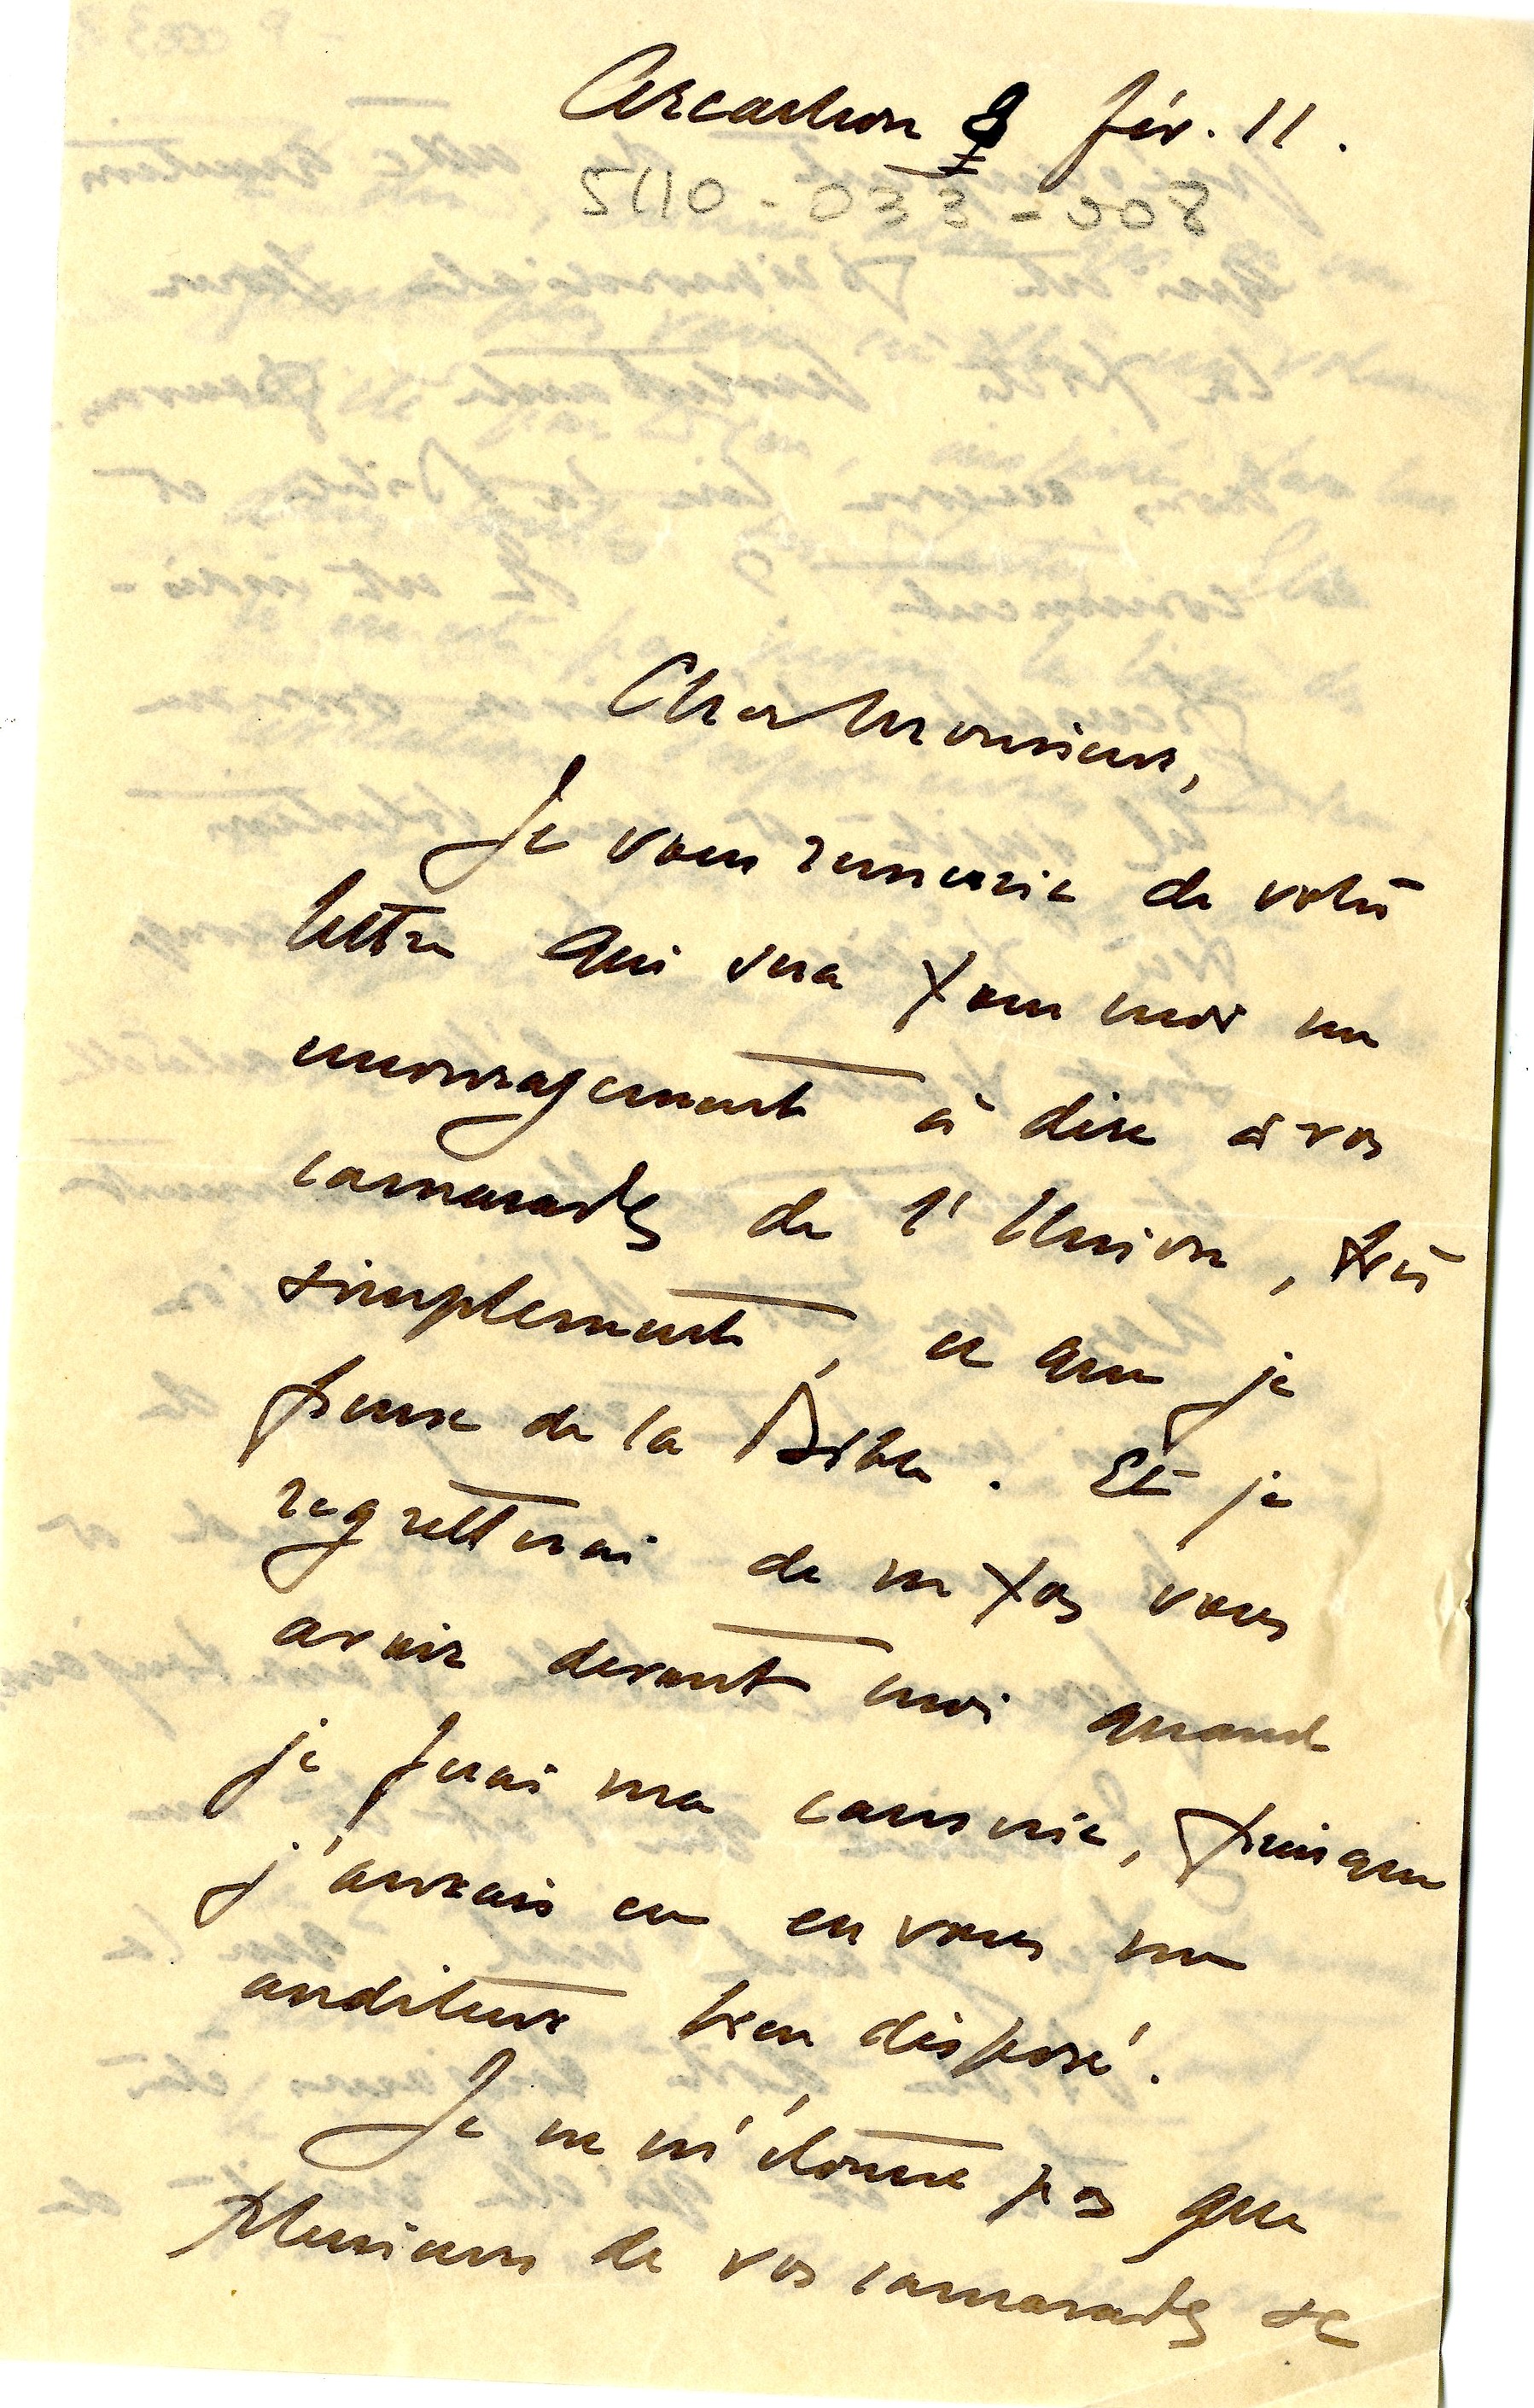 Arcachon 8 fév. 11.
5110-033-008
Cher Monsieur,
Je vous remercie de votre
lettre qui sera pour moi un
encouragement à dire à vos
camarades de l'Union, très
simplement, ce que je
pense de la Bible. Et je
regretterai de ne pas vous
avoir devant moi quand
je ferai ma causerie, puisque
j'aurais eu en vous un
auditeur bien disposé.
Je ne m'étonne pas que
plusieurs de vos camarades se